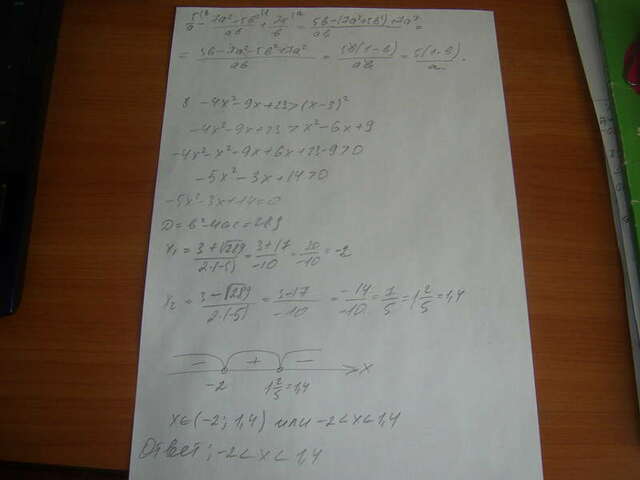 5/a - 7a²-5b²/ab + 7a/b = 5b-(7a²+5b²)+7a²/ab =
= 5b-7a²-5b²+7a²/ab = 5b(1-b)/ab = 5(1-b)/a.
-4x²-9x+23>(x-3)²
-4x²-9x+23>x²-6x+9
-4x²-x²-9x+6x+23-9>0
-5x²-3x+14>0
-5x²-3x+14=0
D=b²-4ac=289
x₁=3+√289/2·(-5)=3+17/-10=20/-10=-2
x₂=3-√289/2·(-5)=3-17/-10=-14/-10=7/5=1 2/5=1,4
- + -
-2 1 2/5=1,4 x
x∈(-2; 1,4) или -2<x<1,4
Ответ: -2<x<1,4